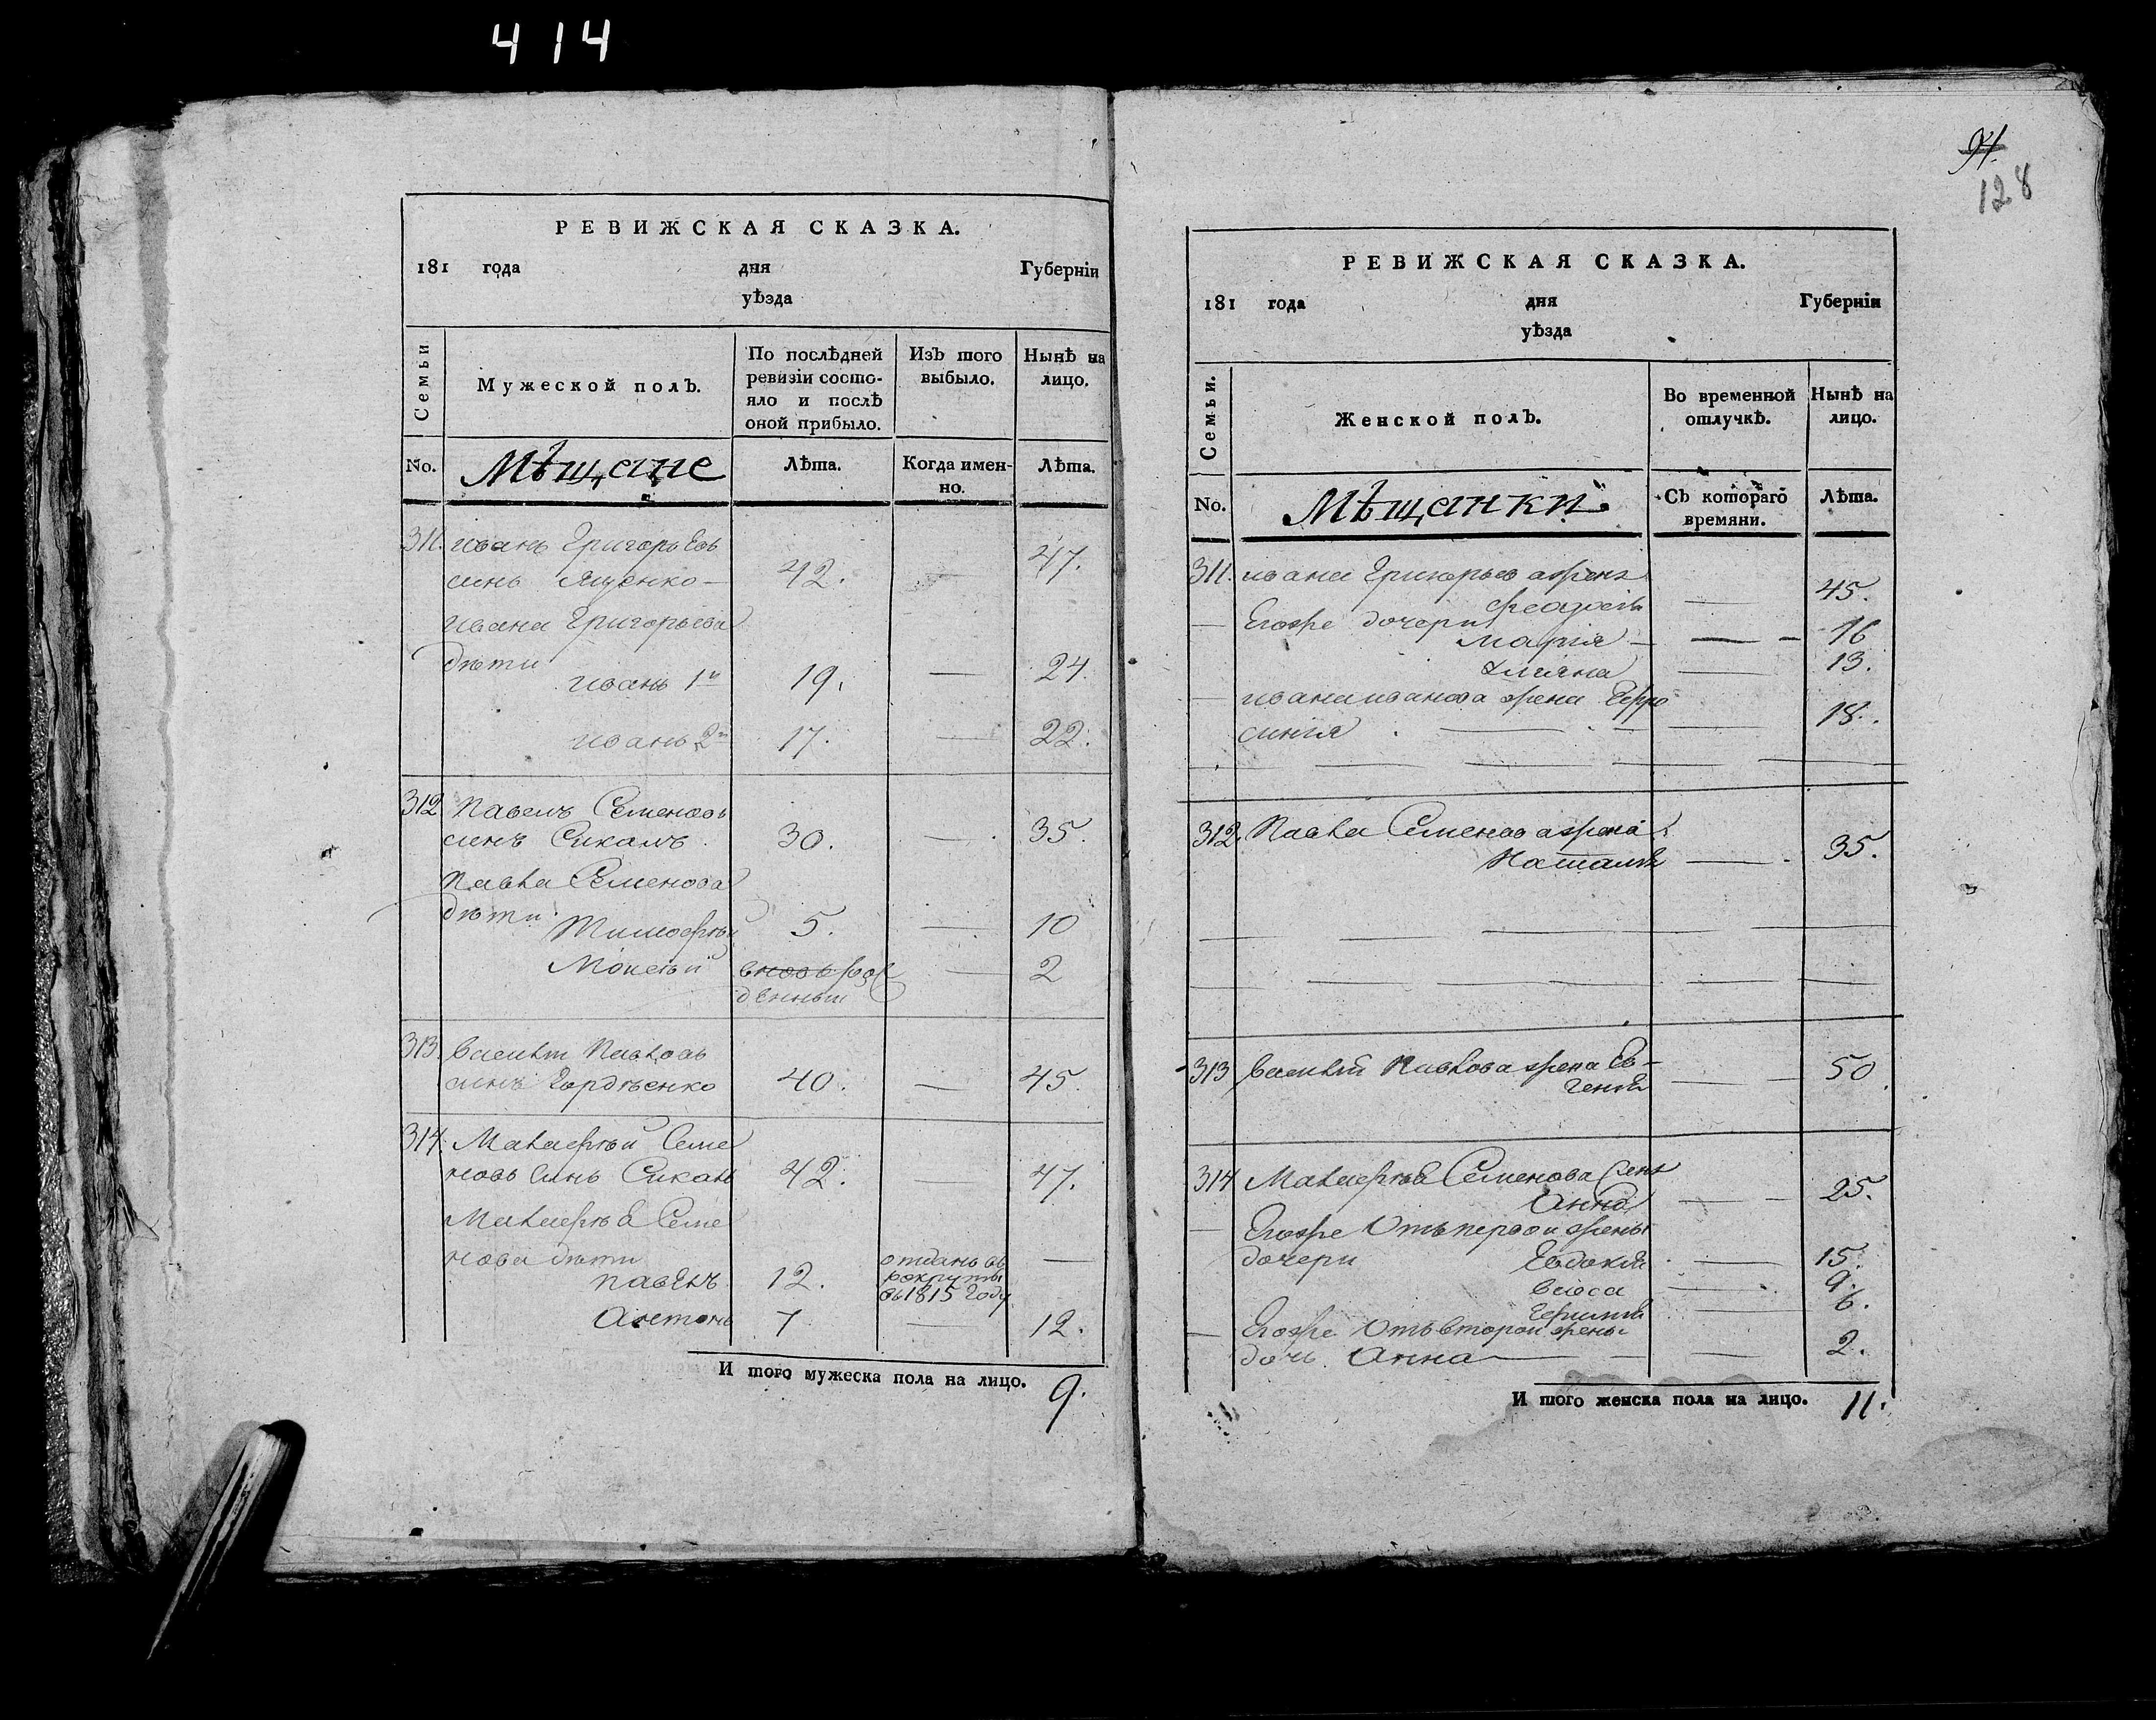 414
РЕВИЖСКАЯ СКАЗКА.
181 года дня Губерніи
уѣзда
Семьи
Мужеской полъ.
По послѣдней ревизіи состояло и послѣ оной прибыло.
Изъ того выбыло.
Нынѣ на лицо.
No.
Мѣщане
Лѣта.
Когда именно.
Лѣта.
311. иванъ Григорьевъ
синъ Яценко — 42. — 47.
ивана Григорьева
дѣти
иванъ 1й 19. — 24.
иванъ 2й 17. — 22.
312 Павелъ Семеновъ
синъ Сикалъ 30. — 35.
Павла Семенова
дѣти
Тимофѣй 5. — 10
Моисѣй вновь рож — 2
денный
313. Василій Павловъ
синъ Гордѣенко 40. — 45.
314. Матвѣй Семе
новъ синъ Сикалъ 42. — 47.
Семе
нова дѣти
Павелъ 12. отданъ въ рокруты въ 1815 году —
Антонъ 7 — 12.
И того мужеска пола на лицо. 9.
91.
128
РЕВИЖСКАЯ СКАЗКА.
181 года дня Губерніи
уѣзда
Семьи.
Женской полъ.
Во временной отлучкѣ.
Нынѣ на лицо.
No.
Мѣщанки
Съ котораго времяни.
Лѣта.
311. ивана Григорьева жена
— 45.
— Егоже дочери
Марія — 16
Уліяна — 13.
— ивана иванова жена Евфро
синія — 18.
312. Павла Семенова жена
Наталія — 35.
313 Василія Павлова жена Ев-
генія — 50
314 Семенова жена
Анна — 25.
— Егоже Отъ первои жены
дочери Евдокія — 15.
Васса — 9.
— 6.
— Егоже Отъ второй жены
дочь Анна — 2.
И того женска пола на лицо. 11.